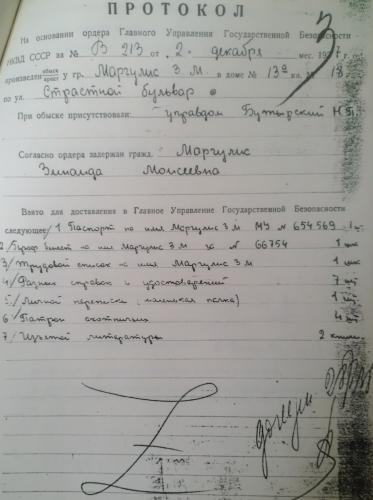 ПРОТОКОЛ
На основании ордера Главного Управления Государственной Безопасности
НКВД СССР за № В 213 от „2„ декабря мес. 1937 г.
произведен обыск арест у гр. Маргулис З. М в доме № 13а кв. № 18
по ул. Страстной бульвар
При обыске присутствовали: управдом Бутырский Н
Согласно ордера задержан гражд. Маргулис
Зинаида Моисеевна
Взято для доставления в Главное Управление Государственной Безопасности
следующее: 1 Паспорт на имя Маргулис З М МУ № 654569 1 шт.
2/ билет на имя Маргулис З. М за № 66754 1 шт
3/ Трудовой список на имя Маргулис З М 1 шт
4/ Разных справок и удостоверений 7 шт
5/ Личной переписки (маленькая папка) 1 шт
6/ Патрон охотничьих 4 шт
7/ Изъятой литературы 2 книги